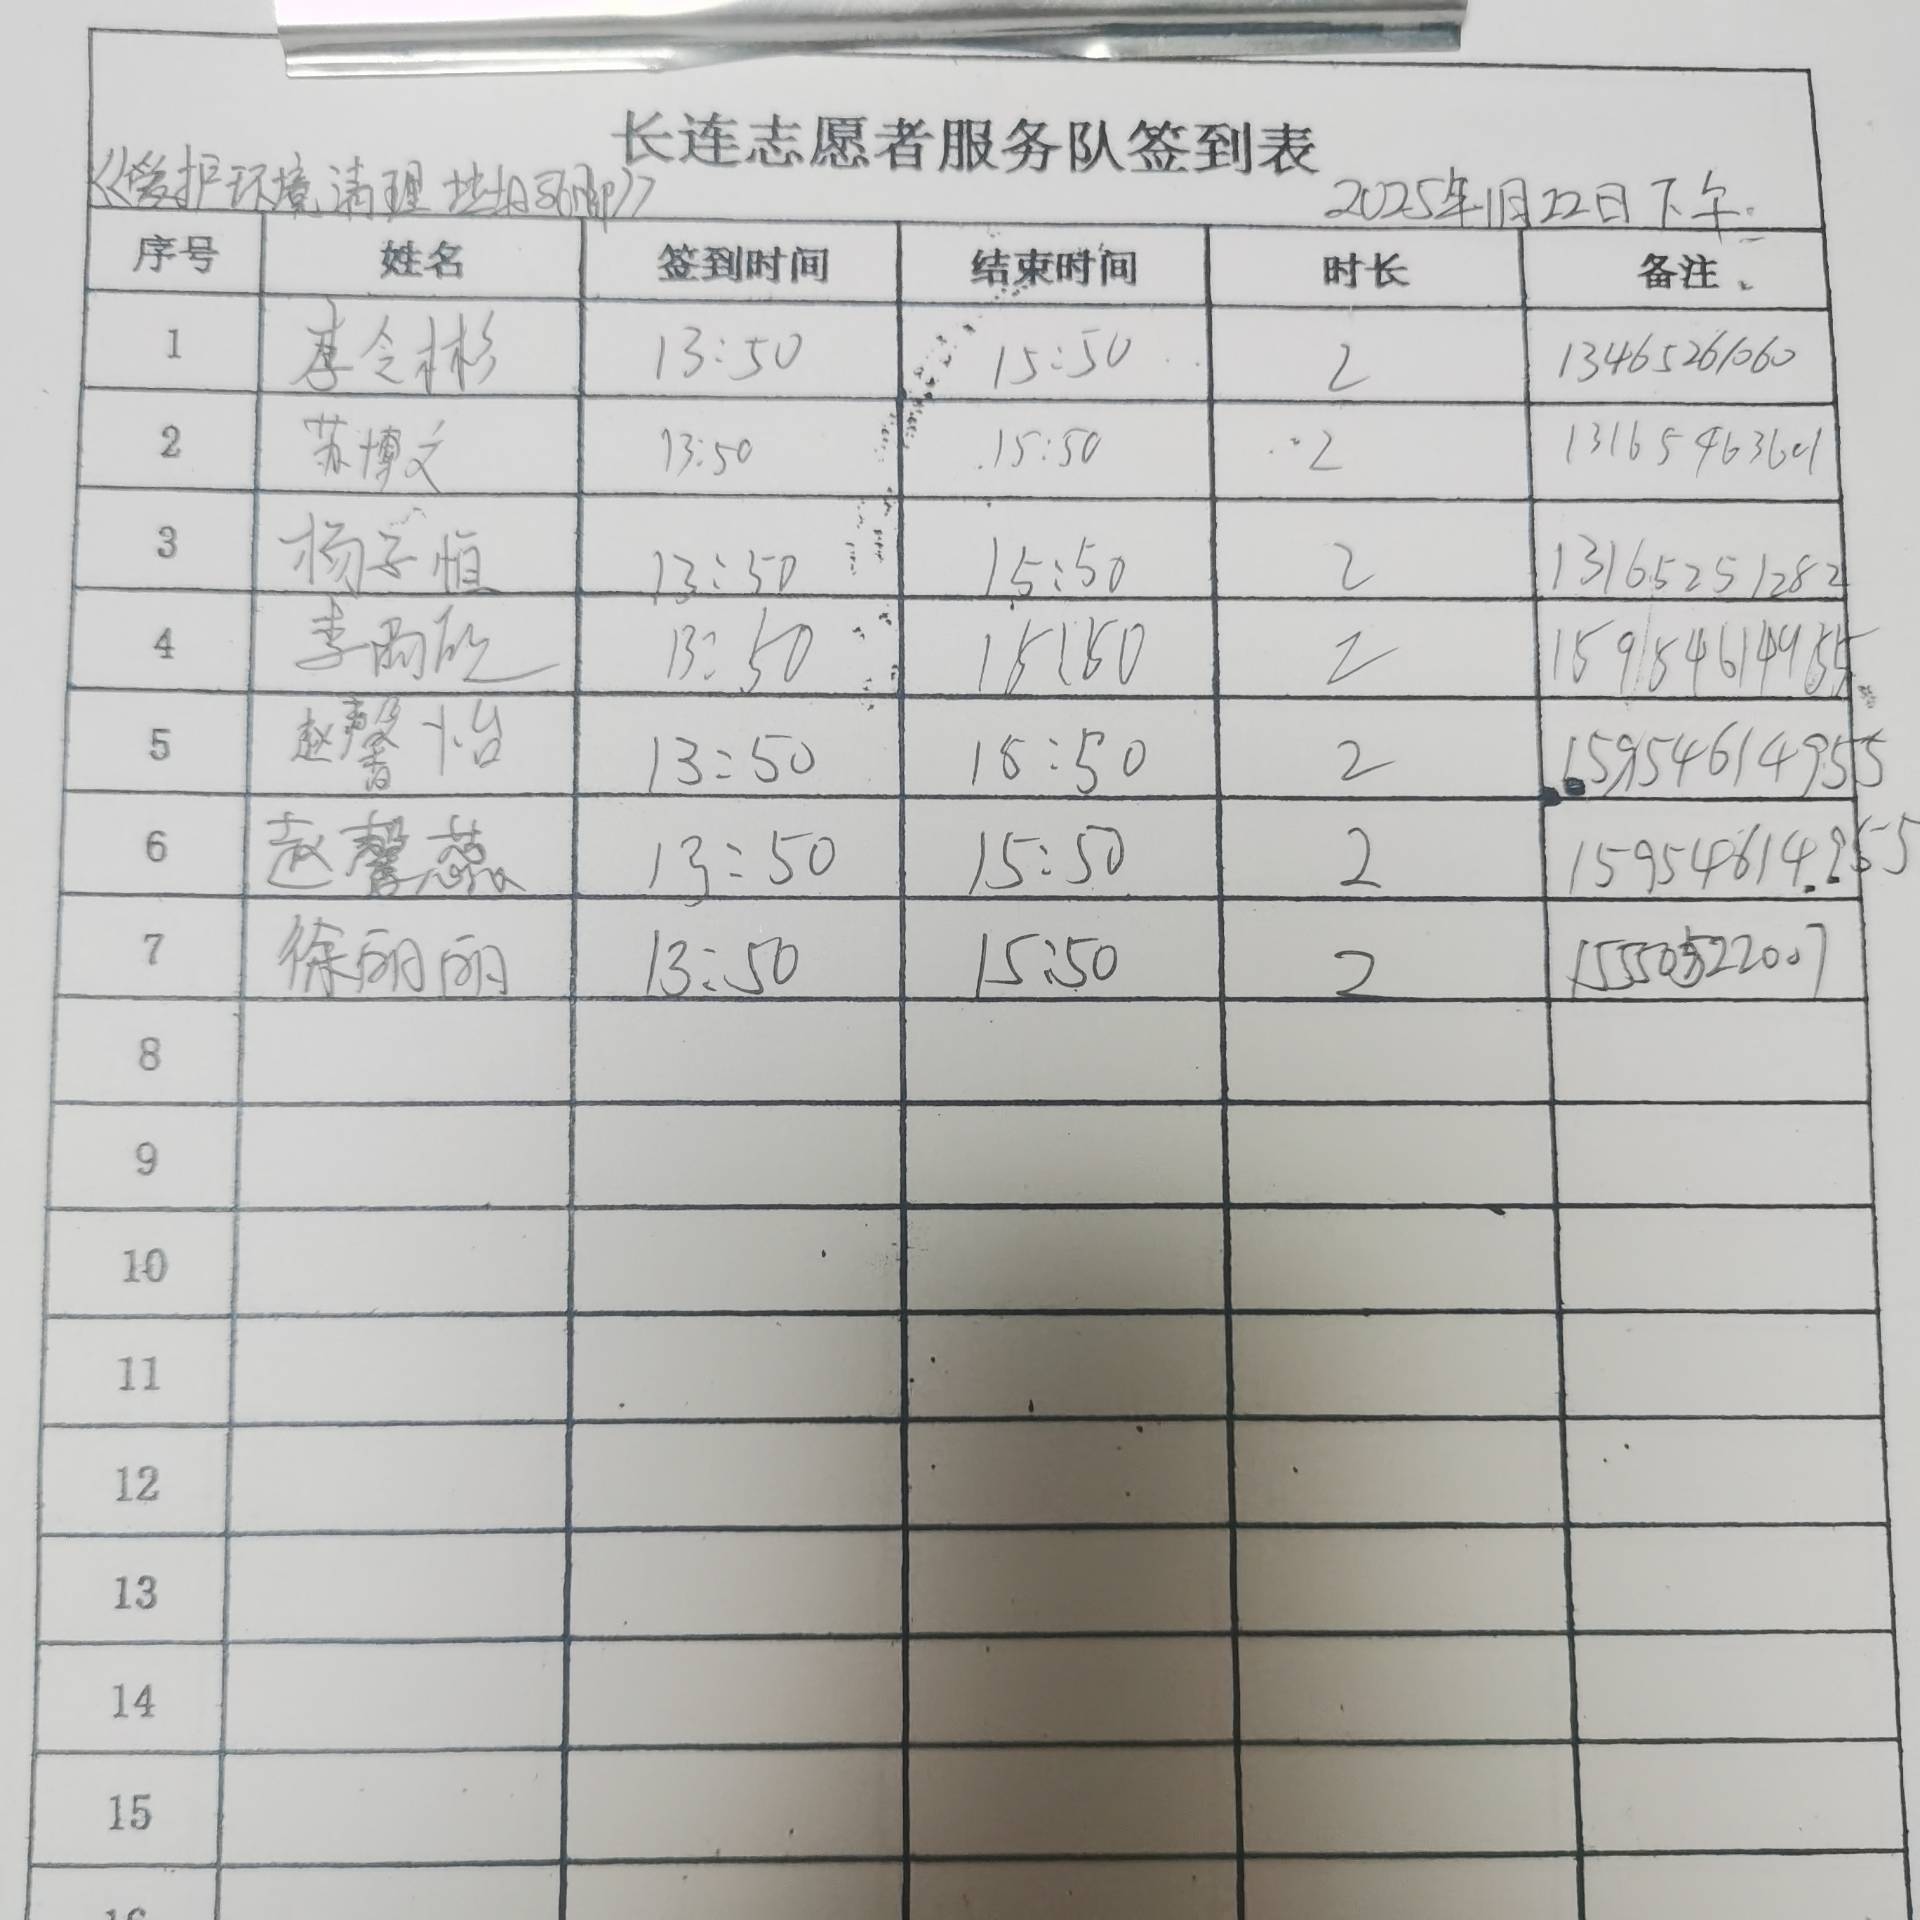 长连志愿者服务队签到表
《爱护环境清理垃圾
2025年1月22日下午
序号 姓名 签到时间 结束时间 时长 备注
1 李令彬 13:50 15:50 2 13465261060
2 苏博文 13:50 15:50 2 13165463601
3 杨子恒 13:50 15:50 2 13165251282
4 李 13:50 15:50 2 15954614955
5 赵馨怡 13:50 15:50 2 15954614955
6 赵馨蕊 13:50 15:50 2 15954614955
7 徐丽丽 13:50 15:50 2
8
9
10
11
12
13
14
15